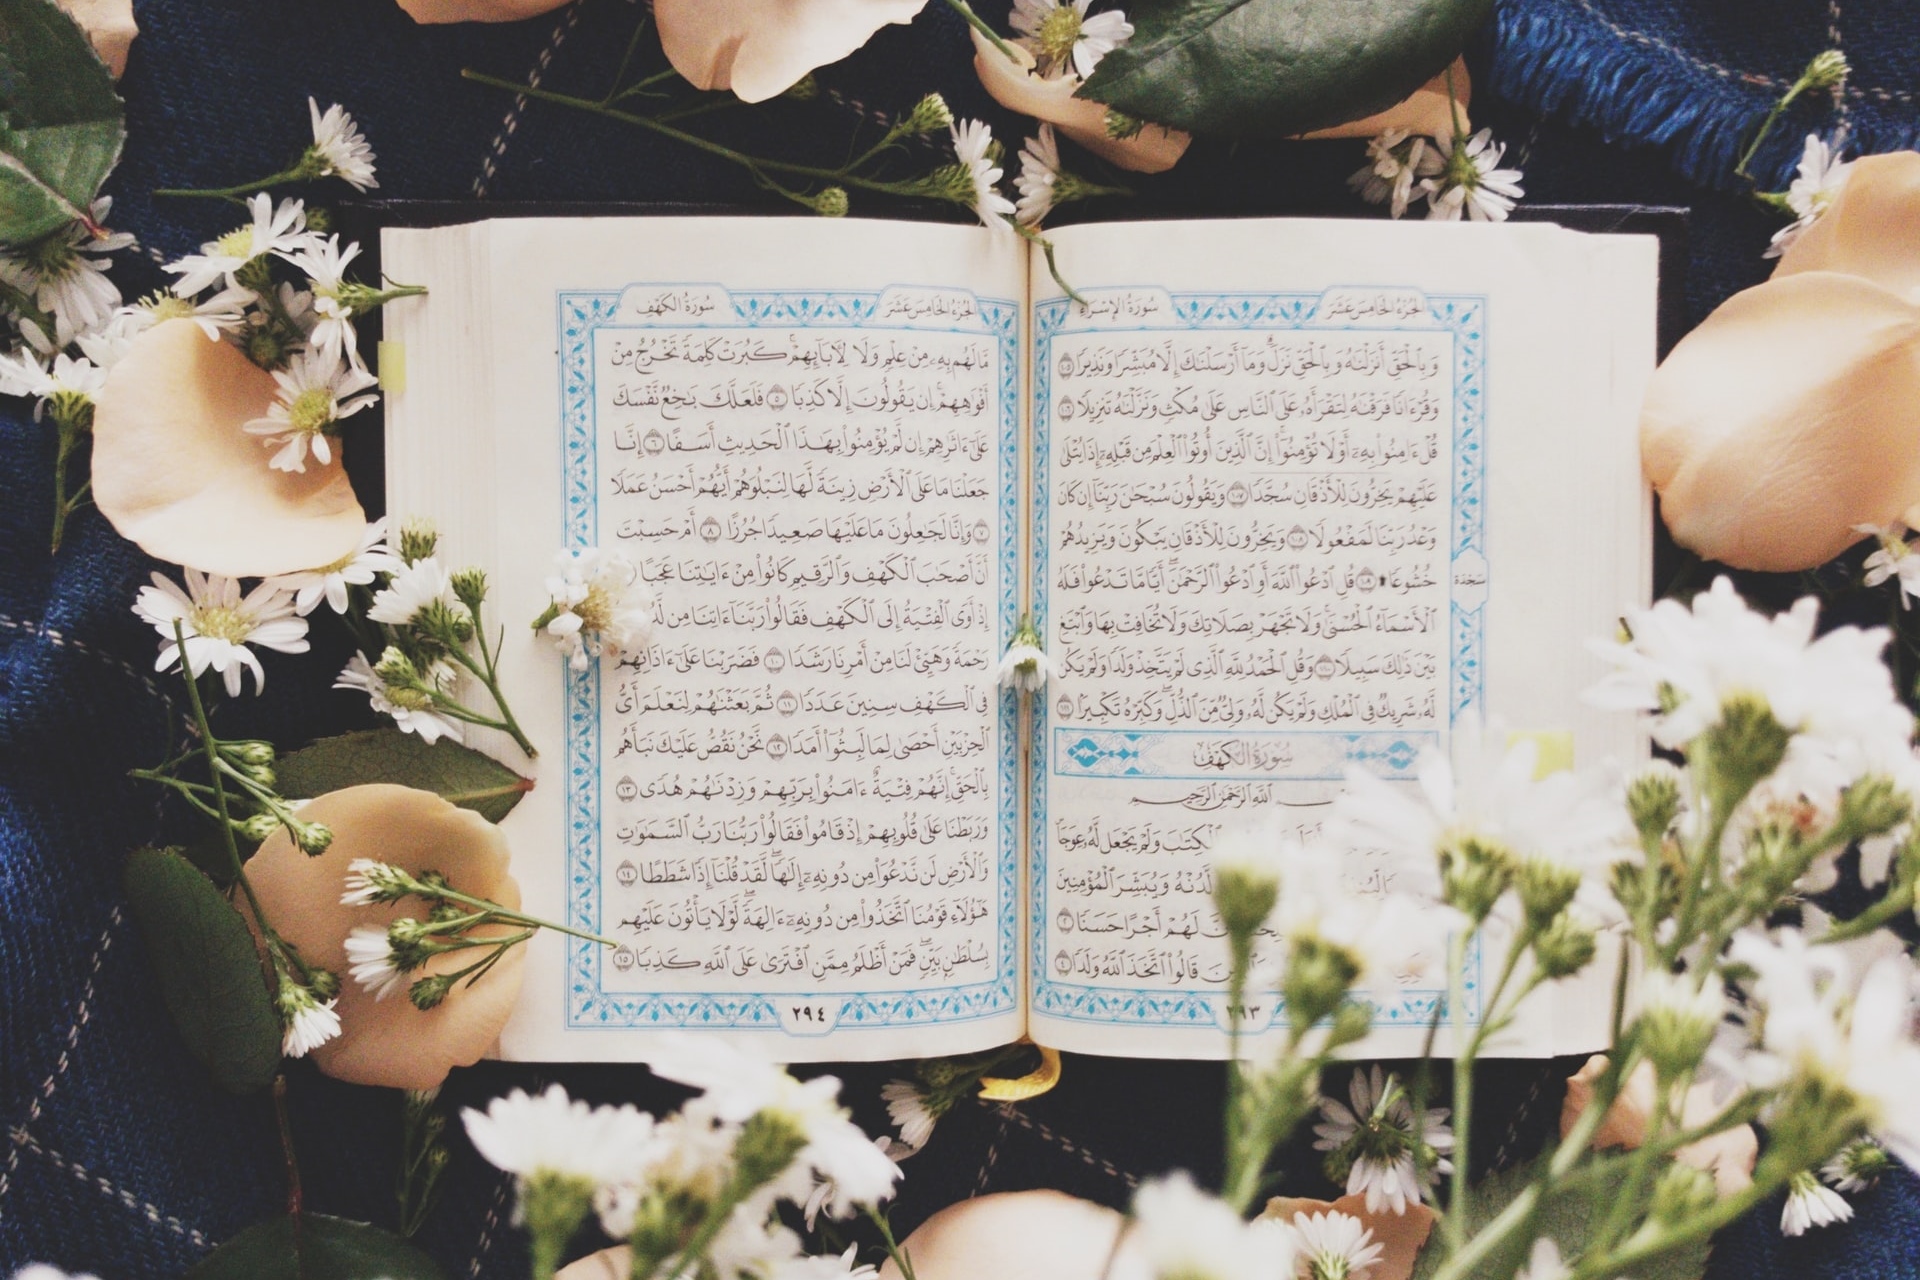 الجزء الخامس عشر
سورة الإسراء
وَبِالْحَقِّ أَنزَلْنَٰهُ وَبِالْحَقِّ نَزَلَ ۗ وَمَآ أَرْسَلْنَٰكَ إِلَّا مُبَشِّرًا وَنَذِيرًا ١٠٥
وَقُرْءَانًا فَرَقْنَٰهُ لِتَقْرَأَهُۥ عَلَى ٱلنَّاسِ عَلَىٰ مُكْثٍ وَنَزَّلْنَٰهُ تَنزِيلًا ١٠٦
قُلْ ءَامِنُوا۟ بِهِۦٓ أَوْ لَا تُؤْمِنُوٓا۟ ۚ إِنَّ ٱلَّذِينَ أُوتُوا۟ ٱلْعِلْمَ مِن قَبْلِهِۦٓ إِذَا يُتْلَىٰ
عَلَيْهِمْ يَخِرُّونَ لِلْأَذْقَانِ سُجَّدًا ١٠٧ وَيَقُولُونَ سُبْحَٰنَ رَبِّنَآ إِن كَانَ
وَعْدُ رَبِّنَا لَمَفْعُولًا ١٠٨ وَيَخِرُّونَ لِلْأَذْقَانِ يَبْكُونَ وَيَزِيدُهُمْ
خُشُوعًا ۩ ١٠٩ قُلِ ٱدْعُوا۟ ٱللَّهَ أَوِ ٱدْعُوا۟ ٱلرَّحْمَٰنَ ۖ أَيًّا مَّا تَدْعُوا۟ فَلَهُ
سجدة
ٱلْأَسْمَآءُ ٱلْحُسْنَىٰ ۚ وَلَا تَجْهَرْ بِصَلَاتِكَ وَلَا تُخَافِتْ بِهَا وَٱبْتَغِ
بَيْنَ ذَٰلِكَ سَبِيلًا ١١٠ وَقُلِ ٱلْحَمْدُ لِلَّهِ ٱلَّذِى لَمْ يَتَّخِذْ وَلَدًا وَلَمْ يَكُن
لَّهُۥ شَرِيكٌ فِى ٱلْمُلْكِ وَلَمْ يَكُن لَّهُۥ وَلِىٌّ مِّنَ ٱلذُّلِّ ۖ وَكَبِّرْهُ تَكْبِيرًۢا ١١١
سورة الكهف
ٱللَّهِ ٱلرَّحْمَٰنِ ٱلرَّحِيمِ
ٱلْكِتَٰبَ وَلَمْ يَجْعَل لَّهُۥ عِوَجَا
لَّدُنْهُ وَيُبَشِّرَ ٱلْمُؤْمِنِينَ
لَهُمْ أَجْرًا حَسَنًا ٢
قَالُوا۟ ٱتَّخَذَ ٱللَّهُ وَلَدًا ٤
٢٩٣
الجزء الخامس عشر
سورة الكهف
مَّا لَهُم بِهِۦ مِنْ عِلْمٍ وَلَا لِءَابَآئِهِمْ ۚ كَبُرَتْ كَلِمَةً تَخْرُجُ مِنْ
أَفْوَٰهِهِمْ ۚ إِن يَقُولُونَ إِلَّا كَذِبًا ٥ فَلَعَلَّكَ بَٰخِعٌ نَّفْسَكَ
عَلَىٰٓ ءَاثَٰرِهِمْ إِن لَّمْ يُؤْمِنُوا۟ بِهَٰذَا ٱلْحَدِيثِ أَسَفًا ٦ إِنَّا
جَعَلْنَا مَا عَلَى ٱلْأَرْضِ زِينَةً لَّهَا لِنَبْلُوَهُمْ أَيُّهُمْ أَحْسَنُ عَمَلًا
٧ وَإِنَّا لَجَٰعِلُونَ مَا عَلَيْهَا صَعِيدًا جُرُزًا ٨ أَمْ حَسِبْتَ
أَنَّ أَصْحَٰبَ ٱلْكَهْفِ وَٱلرَّقِيمِ كَانُوا۟ مِنْ ءَايَٰتِنَا عَجَبًا
إِذْ أَوَى ٱلْفِتْيَةُ إِلَى ٱلْكَهْفِ فَقَالُوا۟ رَبَّنَآ ءَاتِنَا مِن
رَحْمَةً وَهَيِّئْ لَنَا مِنْ أَمْرِنَا رَشَدًا ١٠ فَضَرَبْنَا عَلَىٰٓ ءَاذَانِهِمْ
فِى ٱلْكَهْفِ سِنِينَ عَدَدًا ١١ ثُمَّ بَعَثْنَٰهُمْ لِنَعْلَمَ أَىُّ
ٱلْحِزْبَيْنِ أَحْصَىٰ لِمَا لَبِثُوٓا۟ أَمَدًا ١٢ نَّحْنُ نَقُصُّ عَلَيْكَ نَبَأَهُم
بِٱلْحَقِّ ۚ إِنَّهُمْ فِتْيَةٌ ءَامَنُوا۟ بِرَبِّهِمْ وَزِدْنَٰهُمْ هُدًى ١٣
وَرَبَطْنَا عَلَىٰ قُلُوبِهِمْ إِذْ قَامُوا۟ فَقَالُوا۟ رَبُّنَا رَبُّ ٱلسَّمَٰوَٰتِ
وَٱلْأَرْضِ لَن نَّدْعُوَا۟ مِن دُونِهِۦٓ إِلَٰهًا ۖ لَّقَدْ قُلْنَآ إِذًا شَطَطًا ١٤
هَٰٓؤُلَآءِ قَوْمُنَا ٱتَّخَذُوا۟ مِن دُونِهِۦٓ ءَالِهَةً ۖ لَّوْلَا يَأْتُونَ عَلَيْهِم
بِسُلْطَٰنٍۭ بَيِّنٍ ۖ فَمَنْ أَظْلَمُ مِمَّنِ ٱفْتَرَىٰ عَلَى ٱللَّهِ كَذِبًا ١٥
٢٩٤